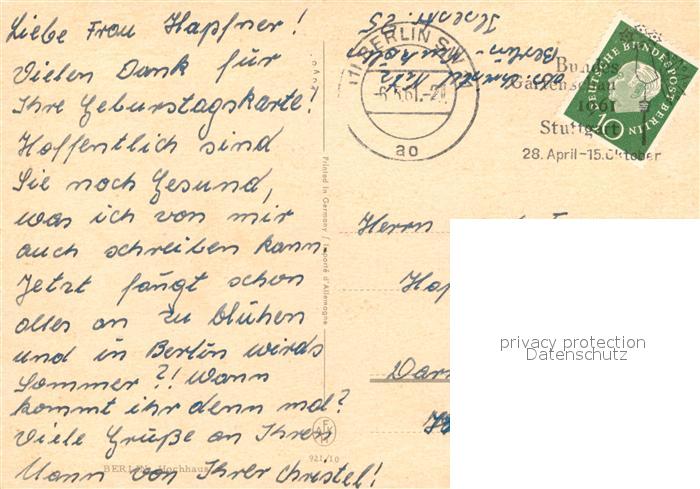 Liebe Frau Hapfner!
Vielen Dank für
Ihre Geburtstagskarte!
Hoffentlich sind
Sie noch Gesund,
was ich von mir
auch schreiben kann.
Jetzt fängt schon
alles an zu blühen
und in Berlin wirds
Sommer?! Wann
kommt ihr denn mal?
Viele Grüße an Ihren
Mann von Ihrer Christel!
BERLIN, Hochhaus
921/10
Printed in Germany / Importé d'Allemagne
Berlin-
BERLIN SW
61.-20
ao
Bundes
Gartenschau
1961
Stuttgart
28. April-15. Oktober
DEUTSCHE BUNDESPOST BERLIN
10
Herrn
Ha
Dar
privacy protection
Datenschutz